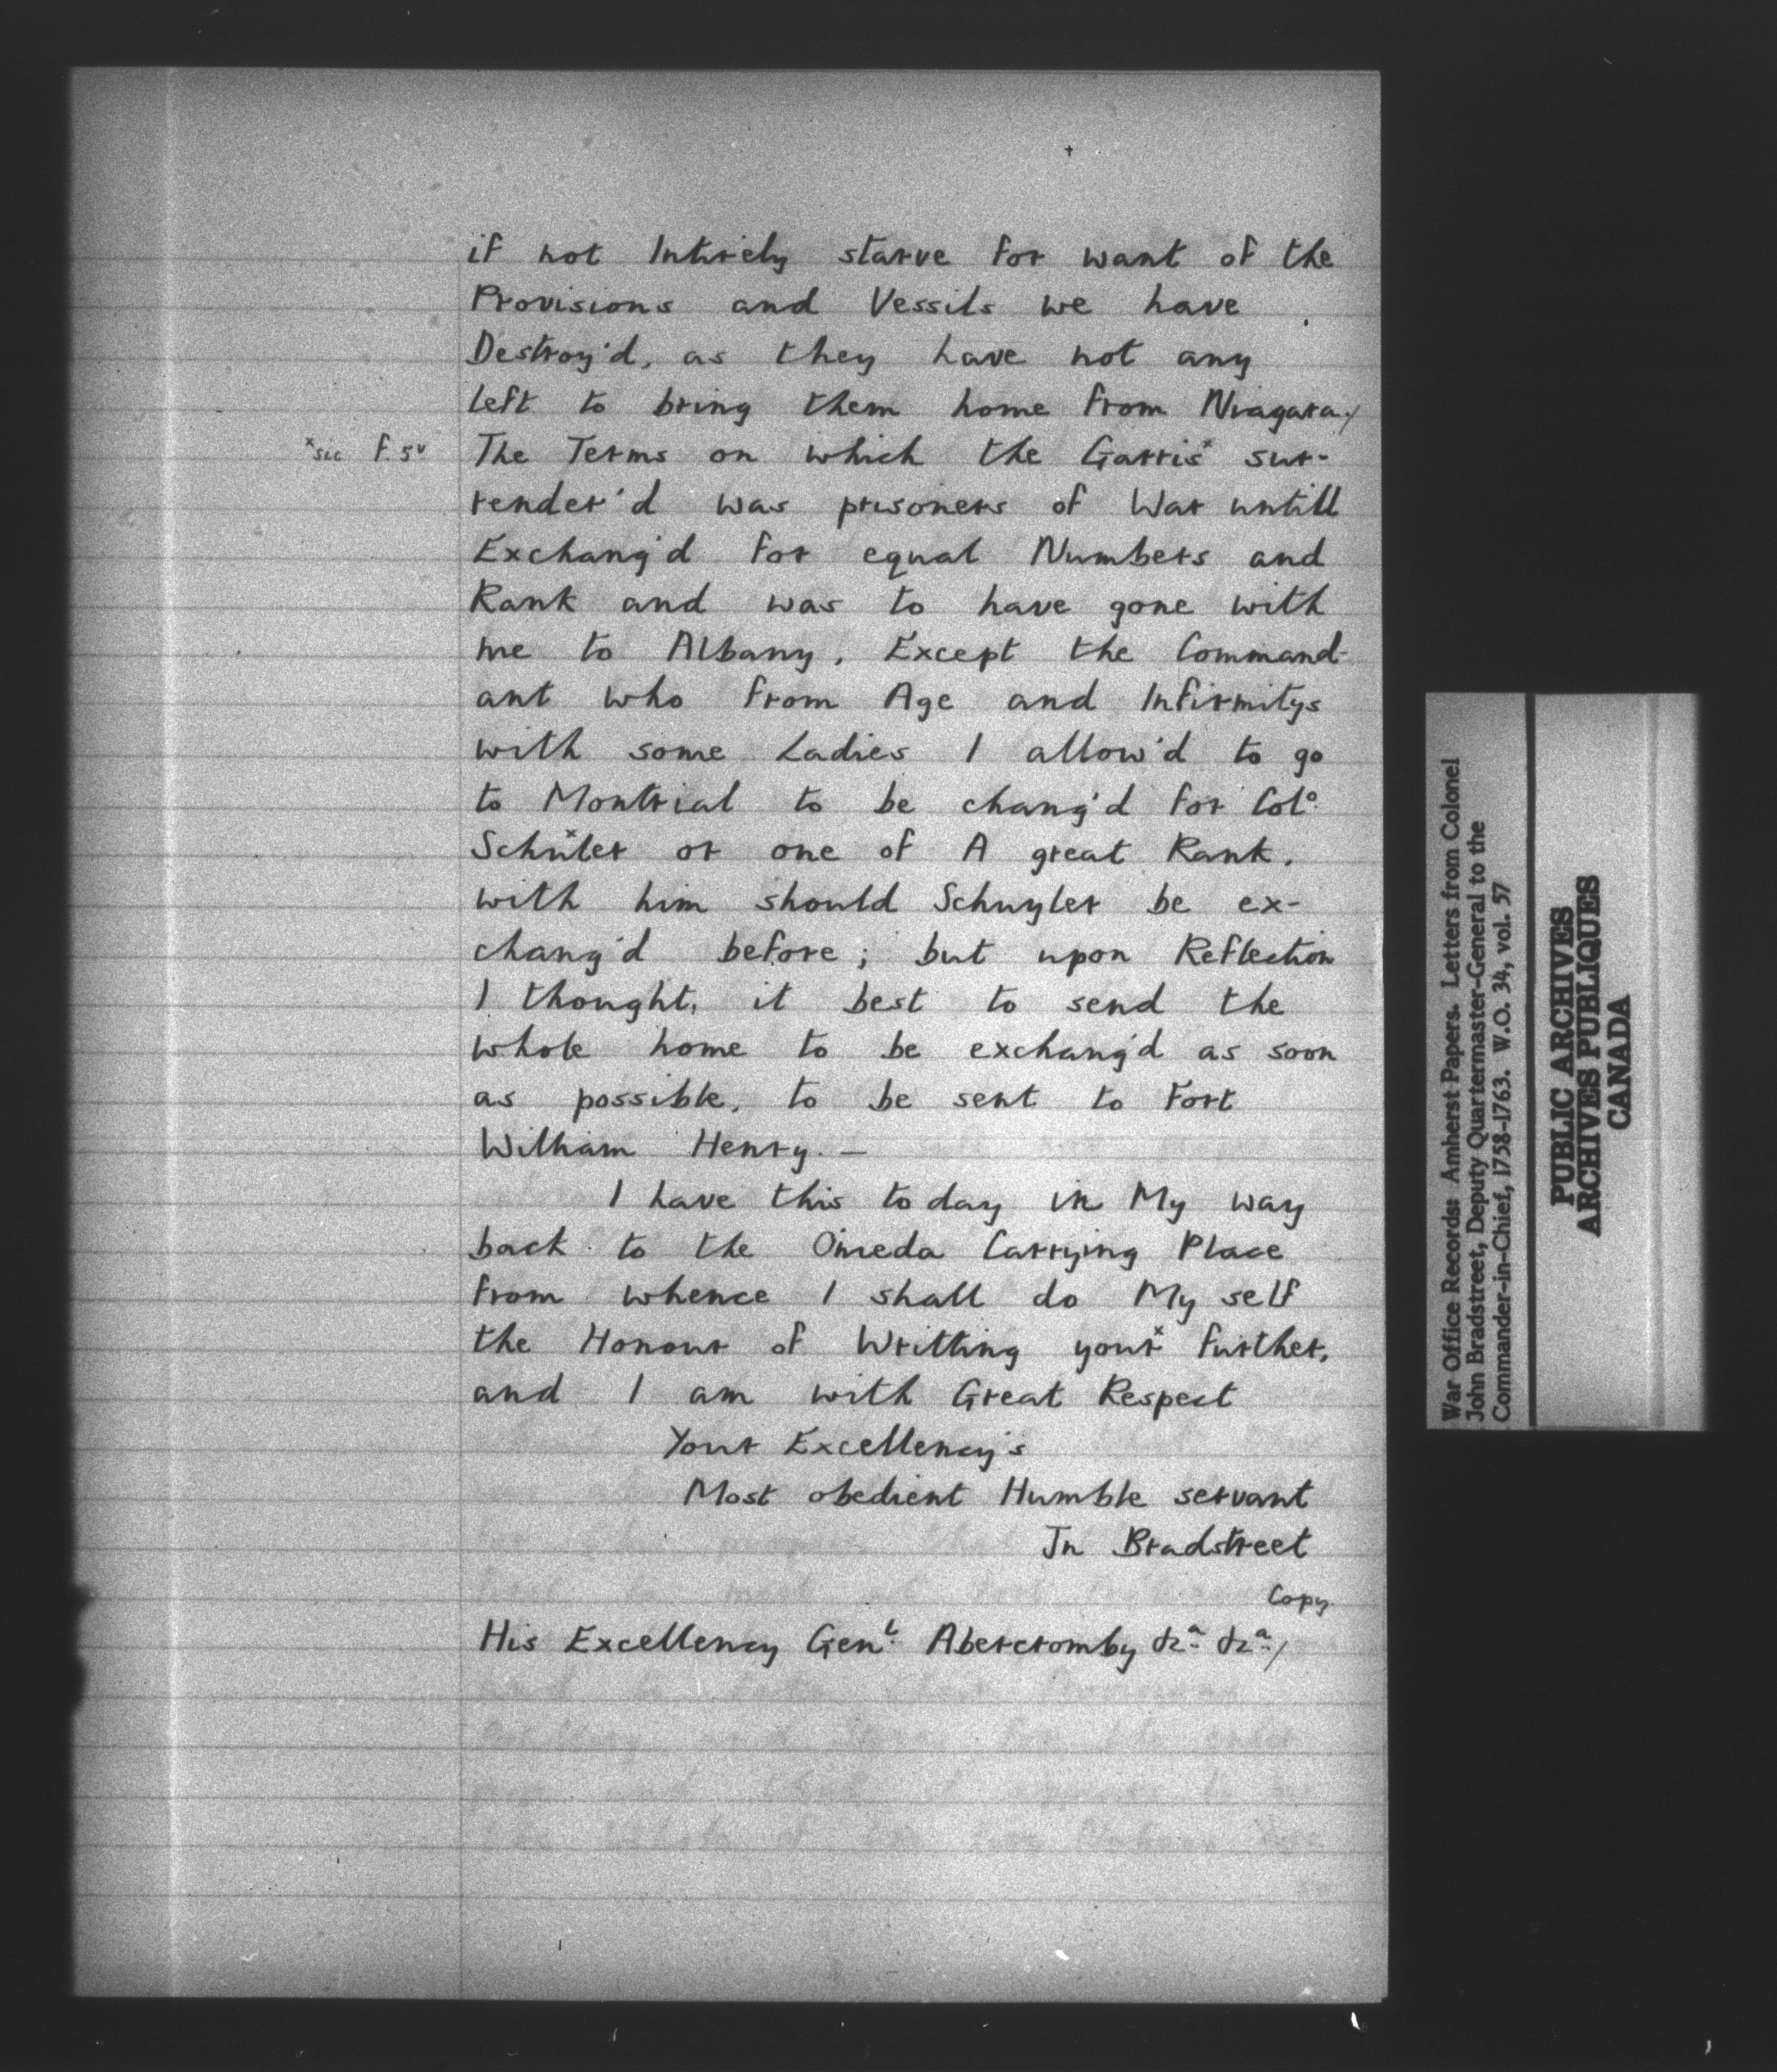 if not Intirely starve for want of the
Provisions and Vessils we have
Destroy'd, as they have not any
left to bring them home from Niagara./
xsic f. 5v The Terms on which the Garrisx sur-
render'd was prisoners of War untill
Exchang'd for equal Numbers and
Rank and was to have gone with
me to Albany, Except the Command-
ant who from Age and Infirmitys
with some Ladies I allow'd to go
to Montrial to be chang'd for Colo.
Schülerx or one of A great Rank.
with him should Schuyler be ex-
chang'd before; but upon Reflection
I thought, it best to send the
whole home to be exchang'd as soon
as possible, to be sent to Fort
William Henry. —
I have this to day in My way
back to the Oneda Carrying Place
from whence I shall do My self
the Honour of Writting yourx further,
and I am with Great Respect
Your Excellency's
Most obedient Humble servant
Jn Bradstreet
Copy
His Excellency Genl. Abercromby &a. &a./
War Office Records: Amherst Papers. Letters from Colonel
John Bradstreet, Deputy Quartermaster-General to the
Commander-in-Chief, 1758-1763. W.O. 34, vol. 57
PUBLIC ARCHIVES
ARCHIVES PUBLIQUES
CANADA